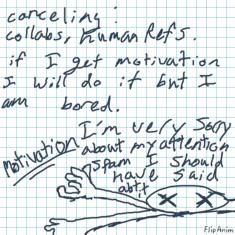 canceling:
collabs, human Refs.
if I get motivation
I will do it but I
am bored.
I'm very sorry
about my attention
spam I should
have said
abt it
motivation
FlipAnim